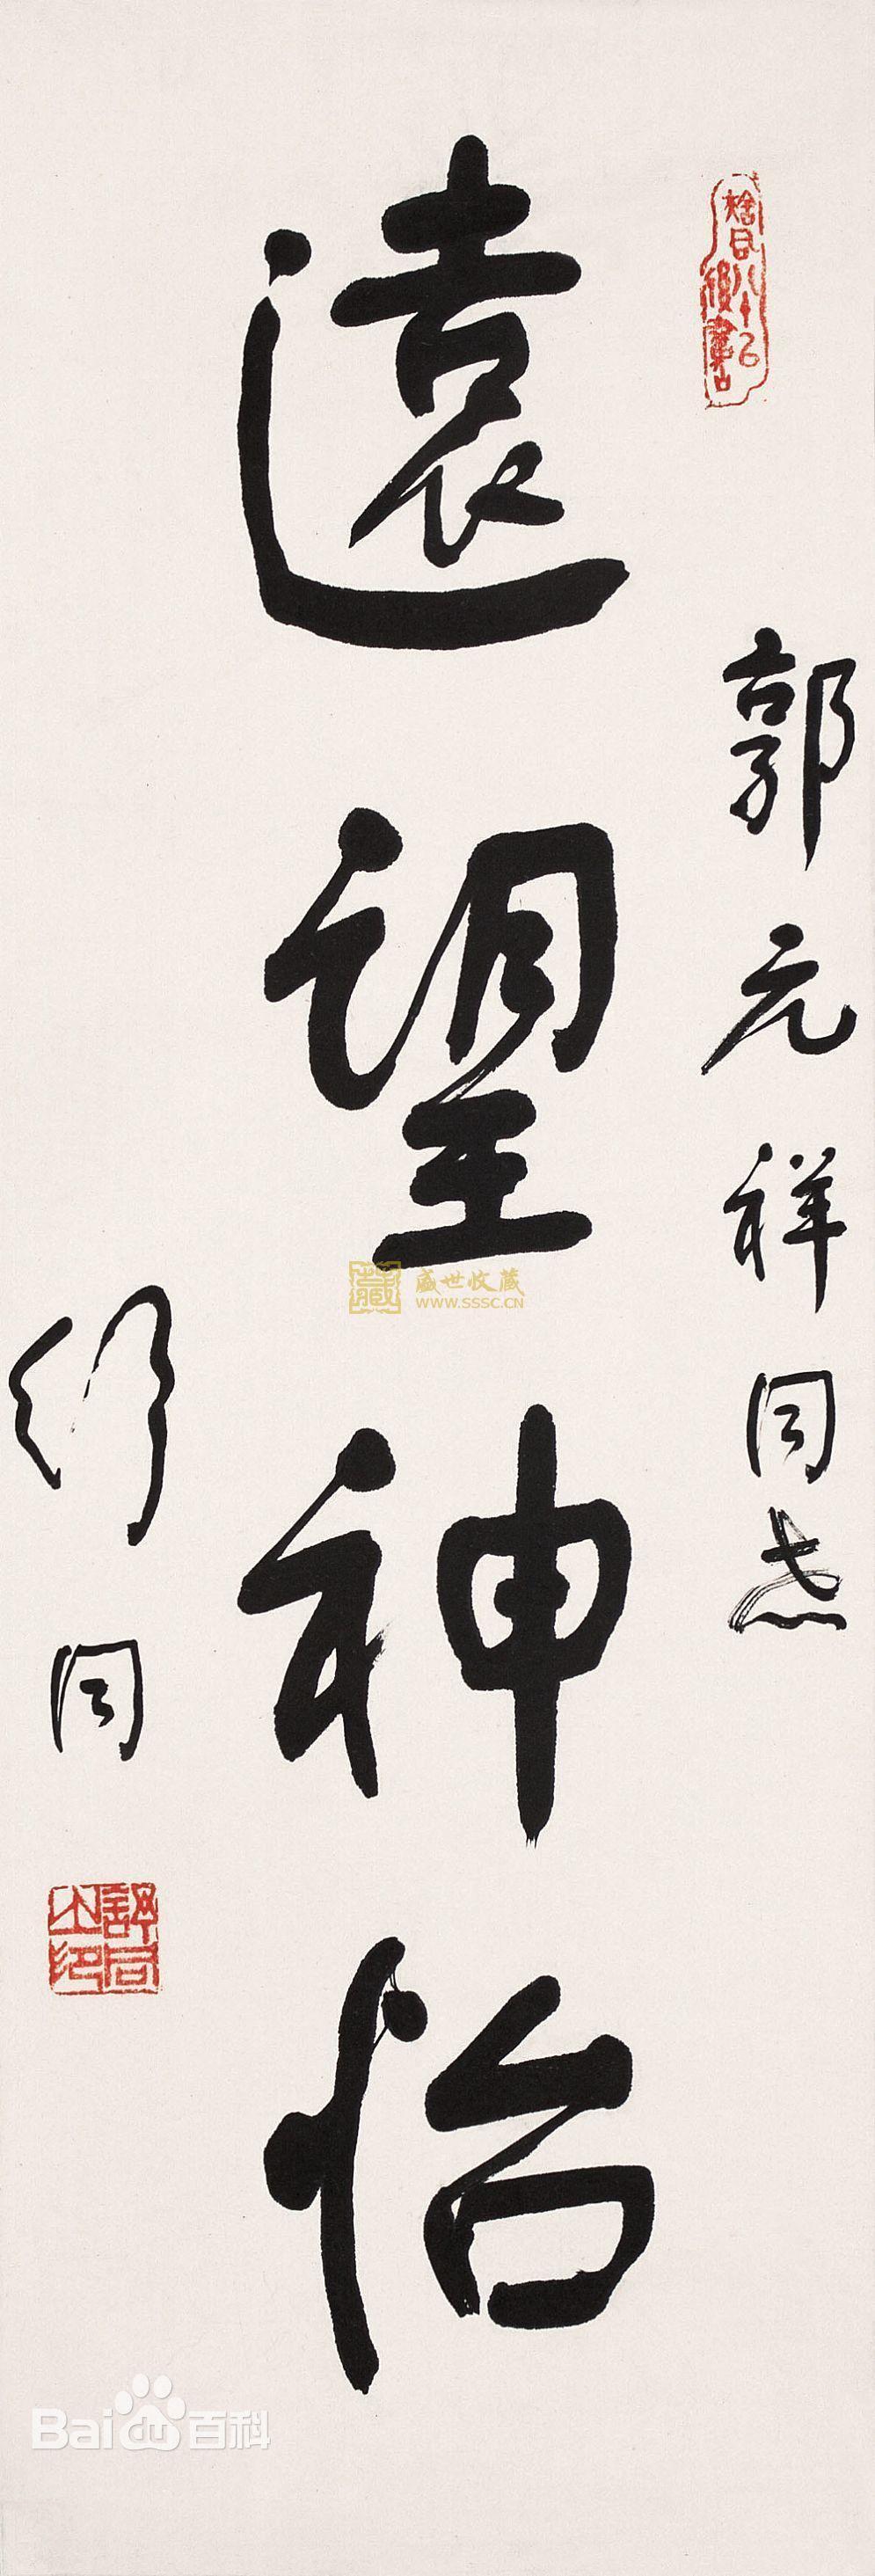 郭元祥同志
遠望神怡
舒同
舒同之印
盛世收藏
WWW.SSSC.CN
Bai百科